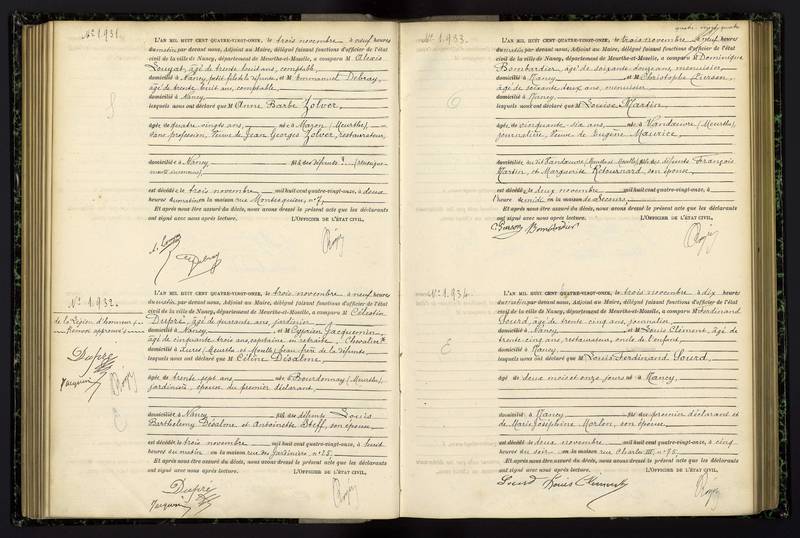 N° 1.931.
L'AN MIL HUIT CENT QUATRE-VINGT-ONZE, le trois novembre à neuf heures
du matin, par devant nous, Adjoint au Maire, délégué faisant fonctions d'officier de l'état
civil de la ville de Nancy, département de Meurthe-et-Moselle, a comparu M Alexis
âgé de trente huit ans, comptable,
domicilié à Nancy, petit fils de la défunte, et M Emmanuel Debray,
âgé de trente huit ans, comptable,
domicilié à Nancy
lesquels nous ont déclaré que M Anne Barbe Zolver,
âgée de quatre vingts ans, née à Mazon (Meurthe),
sans profession, Veuve de Jean Georges Zolver, restaurateur,
domiciliée à Nancy fille des défunts ? (renseignements inconnus),
est décédée le trois novembre mil huit cent quatre-vingt-onze, à deux
heures du matin en la maison rue Montesquieu, n° 7,
Et après nous être assuré du décès, nous avons dressé le présent acte que les déclarants
ont signé avec nous après lecture. L'OFFICIER DE L'ÉTAT CIVIL,
N° 1.932.
de la Légion d'honneur,
Renvoi approuvé
Dupré
Jacquemin
L'AN MIL HUIT CENT QUATRE-VINGT-ONZE, le trois novembre à neuf heures
du matin, par devant nous, Adjoint au Maire, délégué faisant fonctions d'officier de l'état
civil de la ville de Nancy, département de Meurthe-et-Moselle, a comparu M Célestin
Dupré, âgé de quarante ans, jardinier
domicilié à Nancy et M Cyprien Jacquemin,
âgé de cinquante trois ans, capitaine en retraite, Chevalier
domicilié à (Meurthe et Moselle) beau frère de la défunte
lesquels nous ont déclaré que M Céline Désalme,
âgée de trente sept ans née à Bourdonnay (Meurthe),
jardinière, épouse du premier déclarant,
domiciliée à Nancy fille des défunts Louis
Barthelemy Désalme et Antoinette Steff, son épouse,
est décédée le trois novembre mil huit cent quatre-vingt-onze, à huit
heures du matin en la maison rue des Jardiniers, n° 25,
Et après nous être assuré du décès, nous avons dressé le présent acte que les déclarants
ont signé avec nous après lecture. L'OFFICIER DE L'ÉTAT CIVIL,
Dupré
Jacquemin
quatre-vingt-quatre
N° 1.933.
L'AN MIL HUIT CENT QUATRE-VINGT-ONZE, le trois novembre à neuf heures
du matin, par devant nous, Adjoint au Maire, délégué faisant fonctions d'officier de l'état
civil de la ville de Nancy, département de Meurthe-et-Moselle, a comparu M Dominique
Bombardier, âgé de soixante douze ans, menuisier
domicilié à Nancy et M Christophe Pierson,
âgé de soixante deux ans, menuisier
domicilié à Nancy
lesquels nous ont déclaré que M Louise Martin,
âgée de cinquante six ans née à Vandœuvre (Meurthe),
journalière, Veuve de Eugène Maurice,
domiciliée au dit Vandœuvre, (Meurthe et Moselle) fille des défunts François
Martin, et Marguerite Retournard, son épouse,
est décédée le deux novembre mil huit cent quatre-vingt-onze, à
heure de midi en la maison de secours,
Et après nous être assuré du décès, nous avons dressé le présent acte que les déclarants
ont signé avec nous après lecture. L'OFFICIER DE L'ÉTAT CIVIL,
C. Pierson Bombardier
N° 1.934.
L'AN MIL HUIT CENT QUATRE-VINGT-ONZE, le trois novembre à dix heures
du matin, par devant nous, Adjoint au Maire, délégué faisant fonctions d'officier de l'état
civil de la ville de Nancy, département de Meurthe-et-Moselle, a comparu M Ferdinand
Sourd, âgé de trente cinq ans, journalier
domicilié à Nancy et M Louis Clément, âgé de
trente cinq ans, restaurateur, oncle de l'enfant,
domicilié à Nancy
lesquels nous ont déclaré que M Louis Ferdinand Sourd,
âgé de deux mois et onze jours né à Nancy,
domicilié à Nancy fils du premier déclarant et
de Marie Joséphine Morlon, son épouse
est décédé le deux novembre mil huit cent quatre-vingt-onze, à cinq
heures du soir en la maison rue Charles III, n° 75,
Et après nous être assuré du décès, nous avons dressé le présent acte que les déclarants
ont signé avec nous après lecture. L'OFFICIER DE L'ÉTAT CIVIL,
Sourd Louis Clément